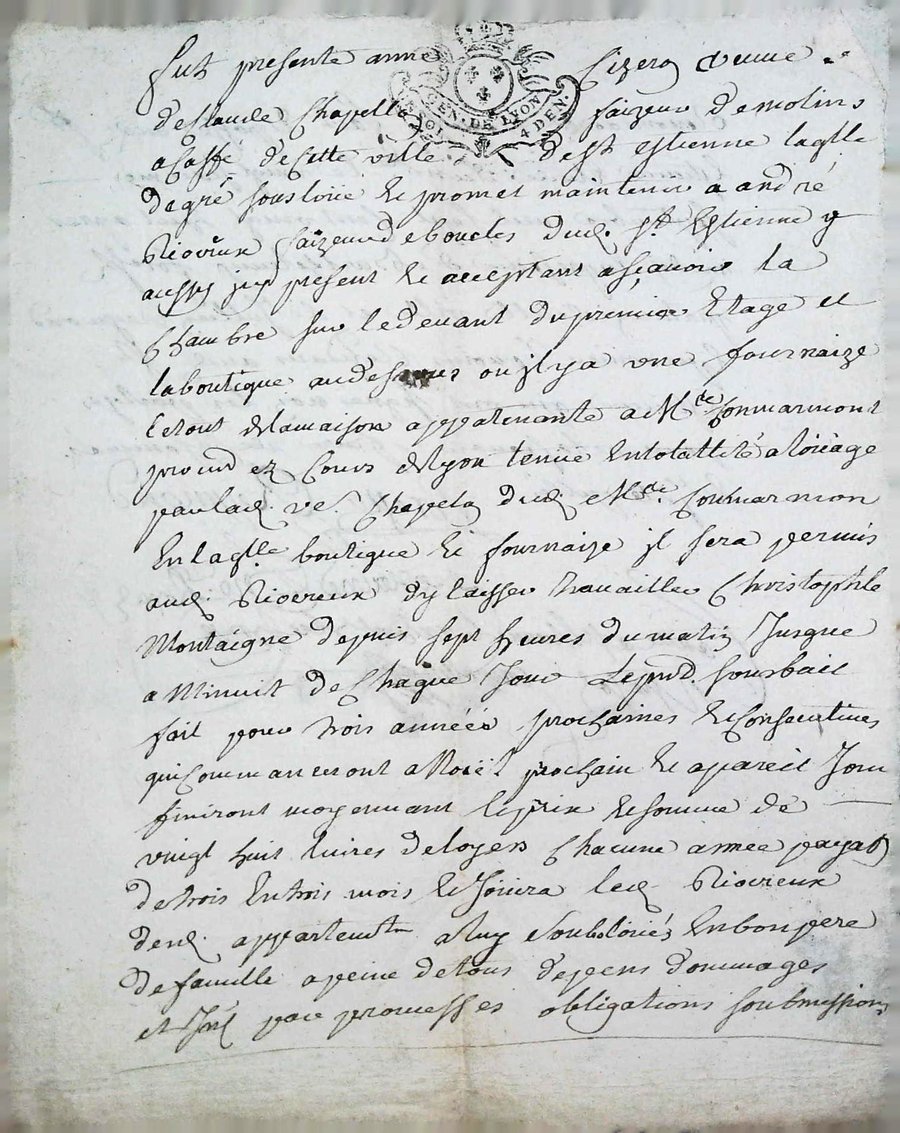 Fut presente anne Sizeron veuve
GEN. DE LYON 4 DEN.
de Claude Chapello faizeur de molins
a Caffé de Cette ville de St Estienne laqlle
de gré sousloüe et promet maintenir a andré
Rioreux faizeur de boucles dud. St. Estienne y
aussy icy present et acceptant a scavoir la
Chambre sur le devant du premier Etage et
la boutique au dessous ou il y a une fournaize
le tout de la maison appartenante a Mde Conmarmont
procur ez Cours de lyon tenue en totallité a loüage
par lad. ve. Chapelon dud. Mde. Conmarmon
En laqlle boutique et fournaize il sera permis
aud. Rioreux dy laisser travailler Christophle
Montaigne depuis sept heures du matin Jusque
a Minuit de Chaque Jour Le pnt. sousbail
fait pour trois années prochaines et Consecutives
qui Commanceront a Noël prochain et a pareil Jour
finiront moyennant le prix et somme de
vingt huit livres de loyers Chacune année payab
de trois En trois mois et Joüira led. Rioreux
desd. appartemts a luy soubsloüés En bon pere
de famille a peine de tous depens dommages
et Int par promesses obligations soubmissions